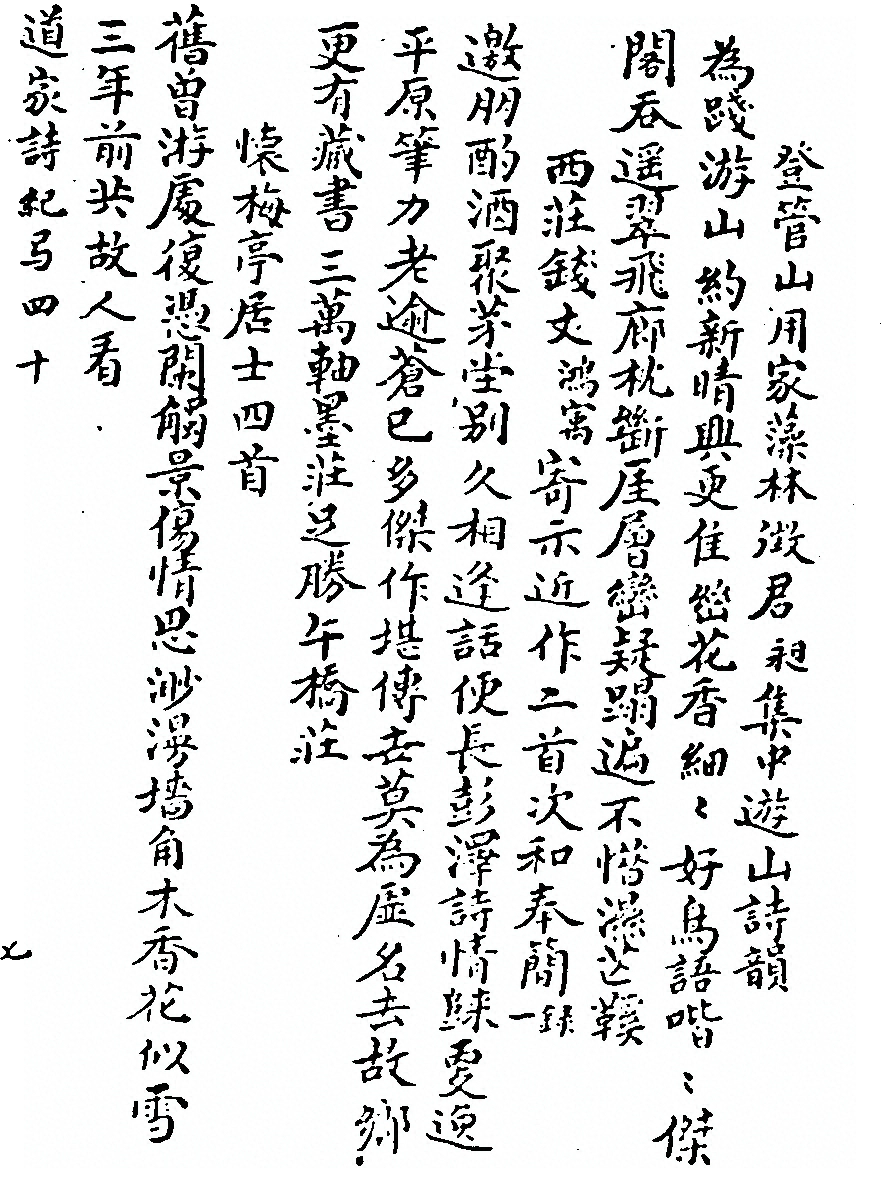 登管山用家藻林徵君昶集中遊山詩韻
為踐游山約新晴興更佳幽花香細〻好鳥語喈〻傑
閣吞遥翠飛廊枕斷厓層巒疑蹋遍不惜濕芒鞵
西莊錢丈鴻寓寄示近作二首次和奉簡一錄
邀朋酌酒聚茅堂別久相逢話便長彭澤詩情疎更逈
平原筆力老逾蒼已多傑作堪傳去莫為虛名去故鄉
更有藏書三萬軸墨莊足勝午橋莊
懷梅亭居士四首
舊曾游處復憑闌觸景傷情思渺漫墻角木香花似雪
三年前共故人看
道家詩紀弓四十
七